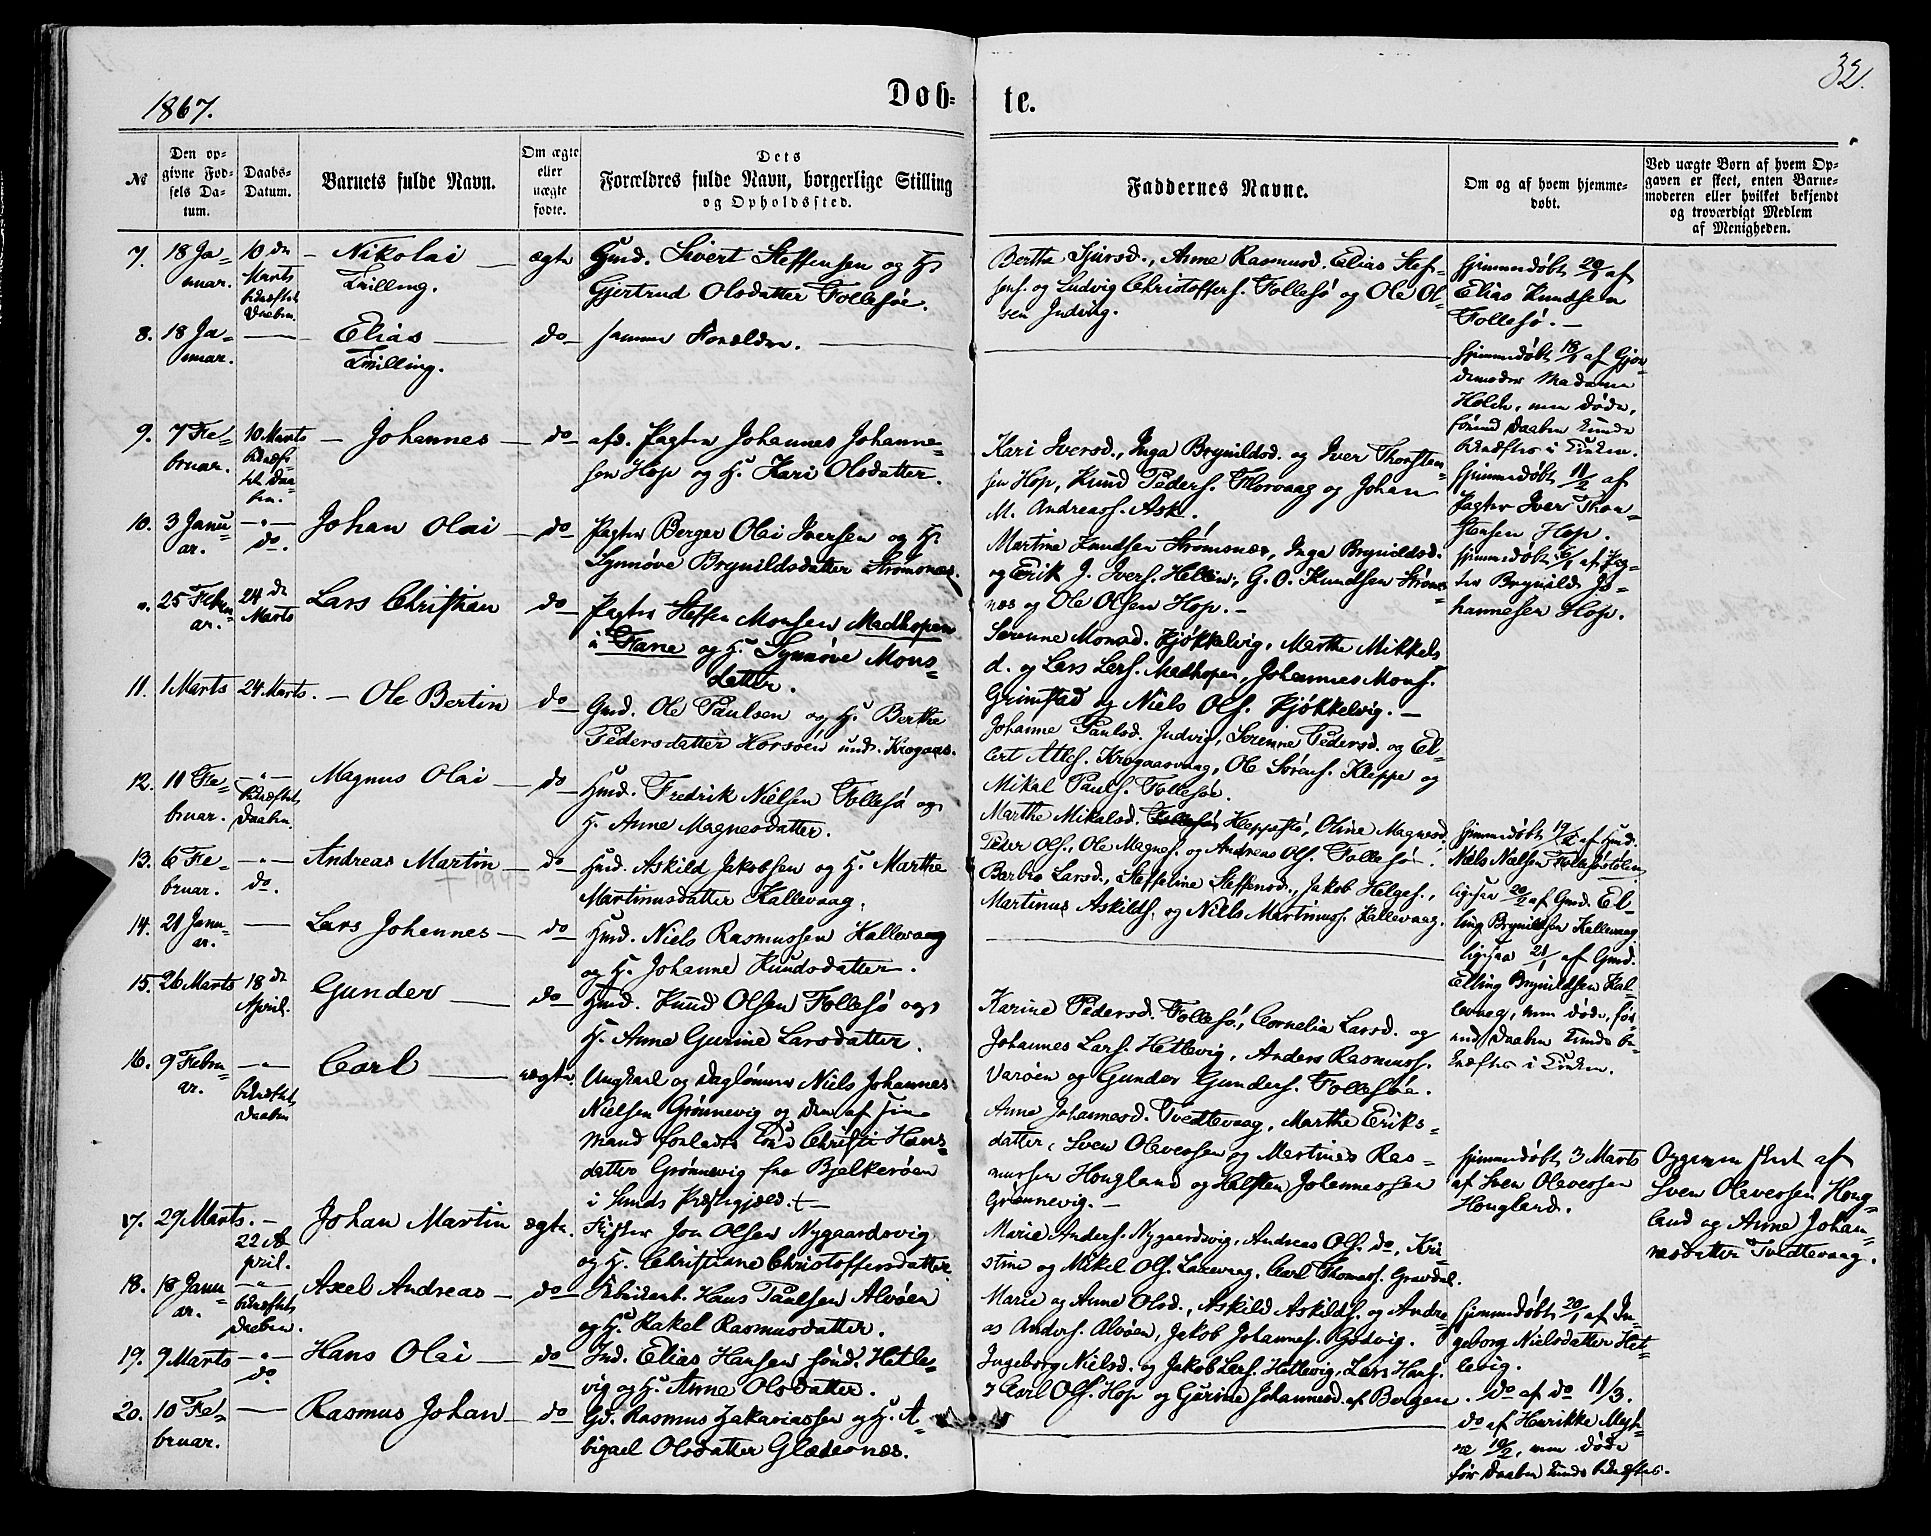 32.
1867.
Døb-
te.
№
Den op-
givne Fød-
sels Da-
tum.
Daabs-
Datum.
Barnets fulde Navn.
Om ægte
eller
uægte
fødte.
Dets
Forældres fulde Navn, borgerlige Stilling
og Opholdssted.
Faddernes Navne.
Om og af hvem hjemme-
døbt.
Ved uægte Børn af hvem Op-
gaven er skeet, enten Barne-
moderen eller hvilket bekjendt
og troværdigt Medlem
af Menigheden.
7.
18 Ja-
nuar.
10 de
Marts
bekræftet
Daaben.
Nikolai
Trilling.
ægte
Gmd. Sivert Steffensen og H.
Gjertrud Olsdatter Follesøe.
Bertha Sjursd., Anne Rasmusd. Elias Stef-
fens. og Ludvig Christoffers. Follesø og Ole Ol-
sen Judvig.
hjemmedøbt 20/1 af
Elias Knudsen
Follesø.
8.
18 Ja-
nuar.
Elias
Trilling.
do
samme Forældre.
hjemmedøbt 18/1 af Gjor-
demoder Madame
Holck, men døde,
førend Daaben kunde
bekræftes i Kirken.
9.
7 Fe-
bruar.
10 Marts
bekræf-
tet Daa-
ben.
Johannes
do
afd. Pagter Johannes Johanne-
sen Hop og H. Kari Olsdatter.
Kari Iversd., Inga Brynildsd. og Iver Thorsten-
sen Hop, Knud Peders. Florvaag og Johan
M. Andreass. Ask.
hjemmedøbt 11/2 af
Pagter Iver Thor-
stensen Hop.
10.
3 Janu-
ar.
do.
Johan Olai
do
Pagter Berger Olai Iversen og H.
Synnøve Brynildsdatter Strømsnæs.
Martine Knudsen Strømsnæs, Inga Brynildsd.
og Erik J. Ivers. Hellen, G. O. Knudsen Strøms-
næs og Ole Olsen Hop.
hjemmedøbt 6/1 af Pag-
ter Brynild Jo-
hannesen Hop.
25 Febru-
ar.
24 de
Marts
Lars Christian
do
Pagter Steffen Monsen Madhopen
i Fane og H. Synnøve Mons-
datter.
Serenne Monsd. Kjøkkelvig, Marthe Mikkels
d. og Lars Lars. Madhopen, Johannes Mons.
Grimstad og Niels Ols. Kjøkkelvig.
11.
1 Marts
24 Marts.
Ole Bertin
do
Gmd. Ole Paulsen og H. Berthe
Pedersdatter Horsøen und. Krogaas.
Johanne Paulsd. Judvig, Serenne Pedersd. og El-
lert Atles. Krogaasvaag, Ole Sørens. Kleppe og
Mikal Pauls. Follesøe.
12.
11 Fe-
bruar.
bekræftet
Daaben.
Magnus Olai
do
Hmd. Fredrik Nielsen Follesø og
H. Anne Magnesdatter.
Marthe Mikalsd. Follesø, Heppesø, Oline Magnesd.
Peder Ols., Ole Magnes. og Andreas Ols. Follesø.
hjemmedøbt 19/2 af Hmd.
Niels Nielsen Follesøstølen
13.
6 Fe-
bruar.
do.
Andreas Martin
do
Hmd. Askild Jakobsen og H. Marthe
Martinusdatter Kallevaag.
Barbro Larsd., Steffeline Steffensd., Jakob Helges.,
Martinus Askilds. og Niels Martinuss. Kallevaag.
ligesaa 20/2 af Gmd. El-
ling Brynildsen Kallevaag
14.
21 Janu-
ar.
Lars Johannes
do
Hmd. Niels Rasmussen Kallevaag
og H. Johanne Knudsdatter.
ligesaa 21/1 af Gmd.
Elling Brynildsen Kal-
levaag, men døde, før-
end Daaben kunde be-
kræftes i Kirken.
15.
26 Marts
18 de
April.
Gunder
do
Hmd. Knud Olsen Follesø og
H. Anne Gurine Larsdatter.
Karine Pedersd. Follesø, Cornelia Larsd. og
Johannes Lars. Hetlevig, Anders Rasmuss.
Varøen og Gunder Gunders. Follesøe.
16.
9 Febru-
ar.
bekræftet
Daaben
Carl
uægte
Ungkarl og Daglønner Niels Johannes
Nielsen Grønnevig og den af sin
Mand forladte Kone Christi Hans-
datter Grønnevig fra Bjelkerøen
i Sunds Præstegjæld.
Anne Johannesd. Tvedtevaag, Marthe Eriks-
datter, Sven Oleversen og Martines Ras-
mussen Hougland og Halsten Johannessen
Grønnevig.
hjemmedøbt 3 Marts
af Sven Oleversen
Hougland.
Opgaven skeet af
Sven Oleversen Houg-
land og Anne Johan-
nesdatter Tvedtevaag.
17.
29 Marts.
22 A-
pril.
Johan Martin
ægte.
Fisker Jon Olsen Nygaardsvig
og H. Christiane Christoffersdatter.
Marie Anders. Nygaardsvig, Andreas Ols. do, Kri-
stine og Mikel Ols. Laxevaag, Carl Thomass. Gravdal.
18.
18 Janu-
ar.
bekræftet
Daaben.
Axel Andreas
do
Fabrikarb. Hans Paulsen Alvøen
og H. Rakel Rasmusdatter.
Marie og Anne Olsd., Askild Askilds. og Andre-
as Anders. Alvøen, Jakob Johannes. Godvig.
hjemmedøbt 20/1 af In-
geborg Nielsdatter Het-
levig.
19.
9 Marts
do
Hans Olai
do
Ind. Elias Hansen Hetle-
vig og H. Anne Olsdatter.
Ingeborg Nielsd. og Jakob Lars. Hetlevig, Lars Hans.
Carl Ols. Hop og Gurine Johannesd. af Bergen.
do af do 11/3.
20.
10 Fe-
bruar.
Rasmus Johan
do
Gd. Rasmus Zakariassen og H. A-
bigael Olsdatter Gladesnæs.
do af Henrikke Myh-
re 10/2, men døde
før Daaben kunde bekræftes.